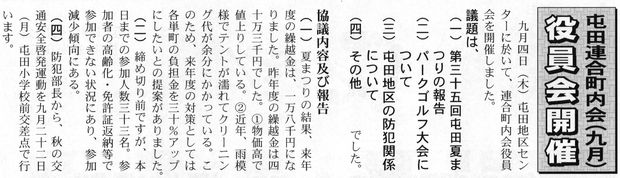 屯田連合町内会(九月)
役員会開催
九月四日(木)屯田地区セン
ターに於いて、連合町内会役員
会を開催しました。
議題は、
(一)第三十五回屯田夏ま
つりの報告
(二)パークゴルフ大会に
ついて
(三)屯田地区の防犯関係
について
(四)その他 でした。
協議内容及び報告
(一)夏まつりの結果、来年
度の繰越金は、一万八千にな
りました。昨年度の繰越金は四
十万三千円でした。①物価高で
値上りしている。②近年、雨模
様でテントが濡れてクリーニン
グ代が余分にかかっている。こ
のため、来年度の対策としては
各単町の負担金を三十%アップ
にしたいとの提案がありました。
(二)締め切り前ですが、本
日までの参加人数三十三名。参
加者の高齢化・免許証返納等で
参加できない状況にあり、参加
減少傾向にある。
(四)防犯部長から、秋の交
通安全啓発運動を九月二十二日
(月)屯田小学校前交差点で行
います。